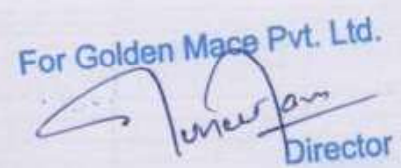 For Golden Mace Pvt. Ltd.
Director